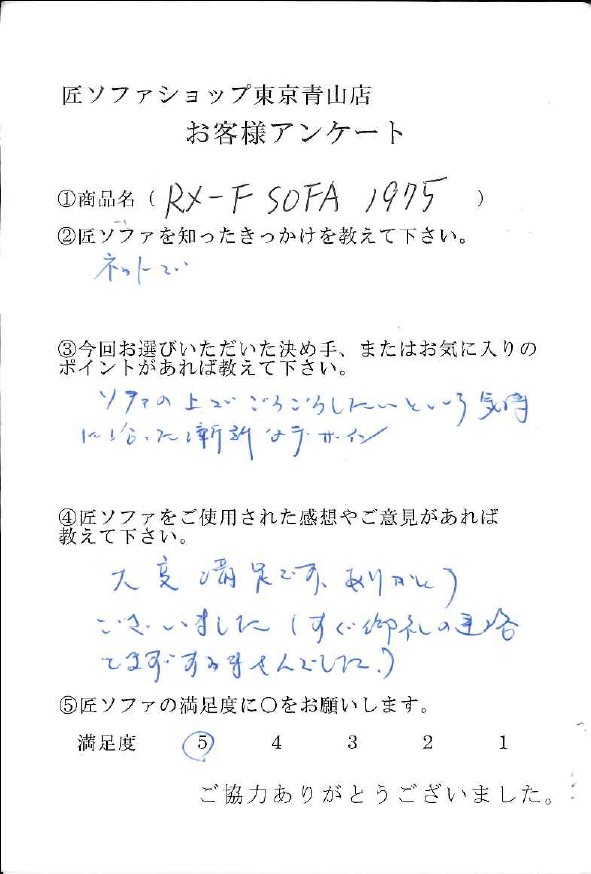 匠ソファショップ東京青山店
お客様アンケート
①商品名（ RX-F SOFA 1975 ）
②匠ソファを知ったきっかけを教えて下さい。
ネットで
③今回お選びいただいた決め手、またはお気に入りの
ポイントがあれば教えて下さい。
ソファの上でごろごろしたいという気持
に合った斬新なデザイン
④匠ソファをご使用された感想やご意見があれば
教えて下さい。
大変満足です、ありがとう
ございました（すぐ御礼の連絡
できずすみませんでした。）
⑤匠ソファの満足度に〇をお願いします。
満足度 5 4 3 2 1
ご協力ありがとうございました。